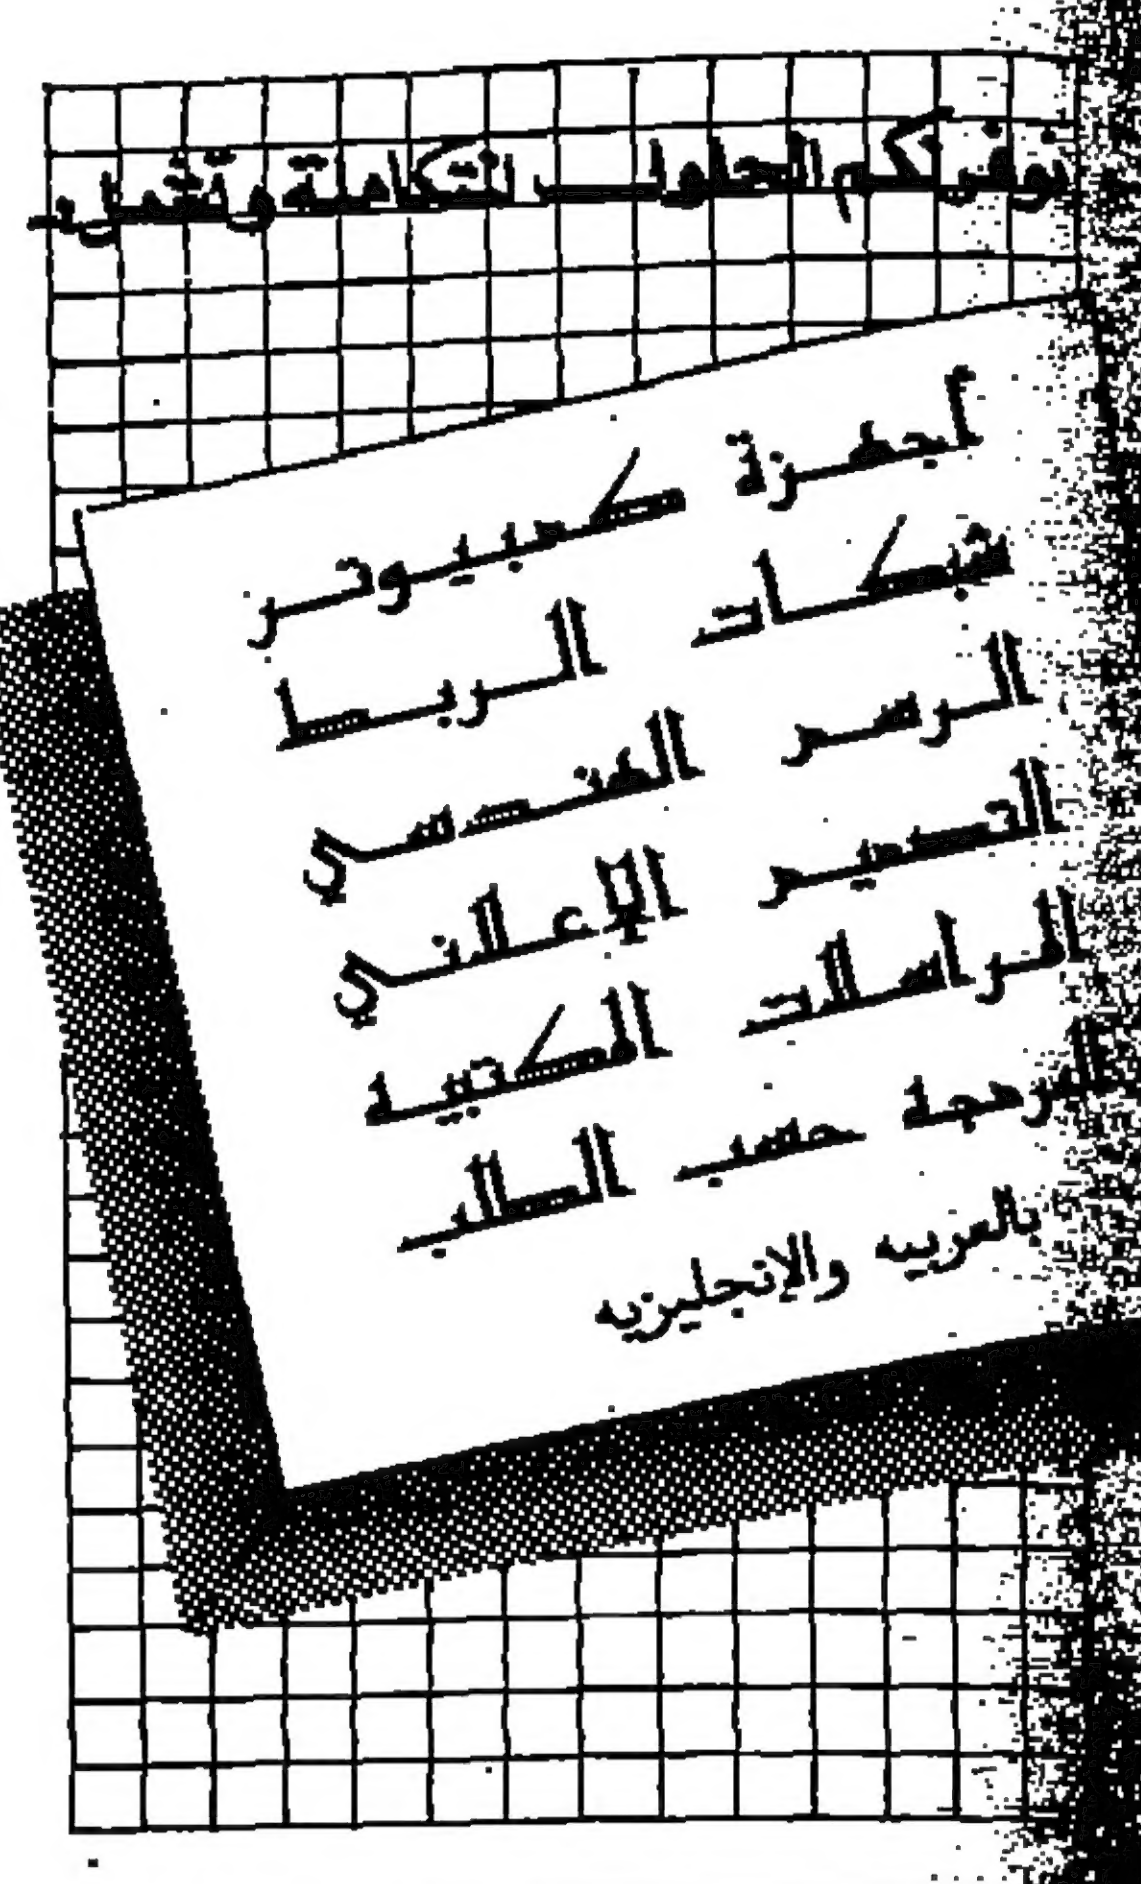 نوفر لكم الحلول المتكاملة وتشمل
أجهزة كمبيوتر
شبكات الربط
الرسم الهندسي
التصميم الإعلاني
المراسلات المكتبية
البرمجة حسب الطلب
بالعربيه والإنجليزيه